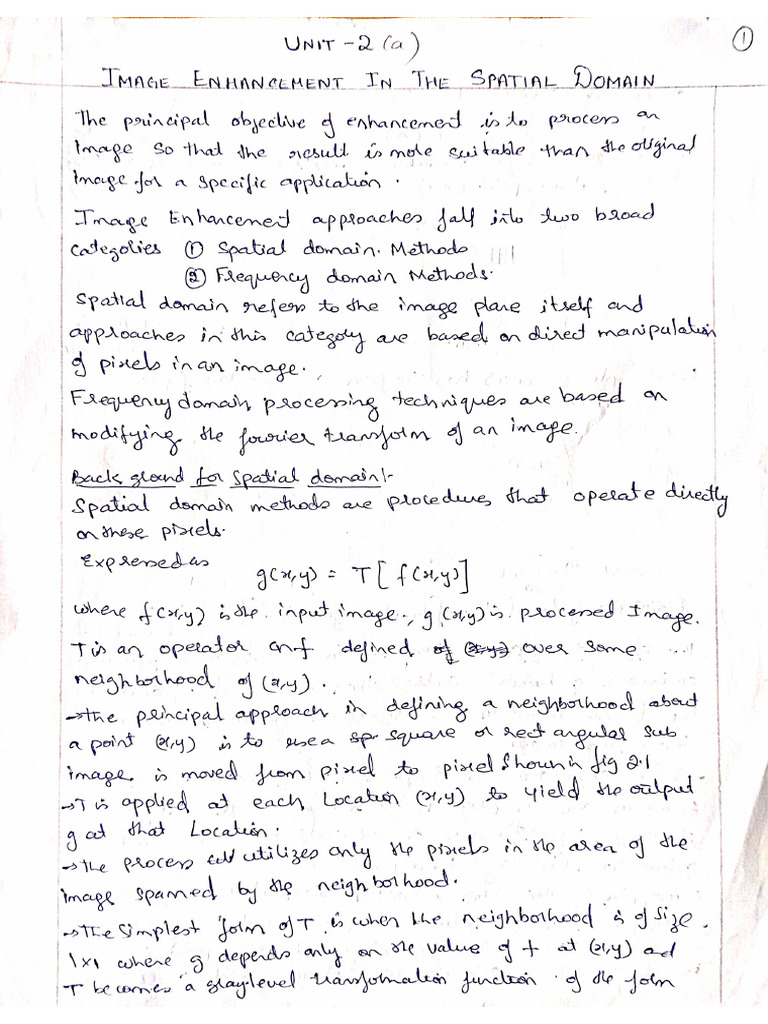 UNIT -2 (a)
1
IMAGE ENHANCEMENT IN THE SPATIAL DOMAIN
The principal objective of enhancement is to process an
image so that the result is more suitable than the original
image for a specific application.
Image Enhancement approaches fall into two broad
categories ① Spatial domain. Methods
② Frequency domain Methods.
Spatial domain refers to the image plane itself and
approaches in this category are based on direct manipulation
of pixels in an image.
Frequency domain processing techniques are based on
modifying the fourier transform of an image.
Back ground for spatial domain:-
Spatial domain methods are procedures that operate directly
on these pixels.
Expressed as
g(x,y) = T[f(x,y)]
where f(x,y) is the input image., g(x,y) is processed Image.
T is an operator on f defined of (x,y) over some
neighborhood of (x,y).
→ the principal approach in defining a neighborhood about
a point (x,y) is to use a sp square or rect angular sub
image is moved from pixel to pixel shown in fig 2.1
→ T is applied at each Location (x,y) to yield the output
g at that Location.
→ the process utilizes only the pixels in the area of the
image spanned by the neighborhood.
→ The simplest form of T is when the neighborhood is of size
1x1 where g depends only on the value of f at (x,y) and
T becomes a gray-level transformation function of the form